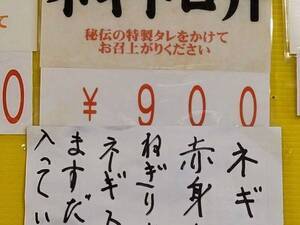 ネギトロ丼
秘伝の特製タレをかけて
お召上がりください
0
¥900
ネギ
赤身
ねぎり
ネーギ
ますだ
入ってい